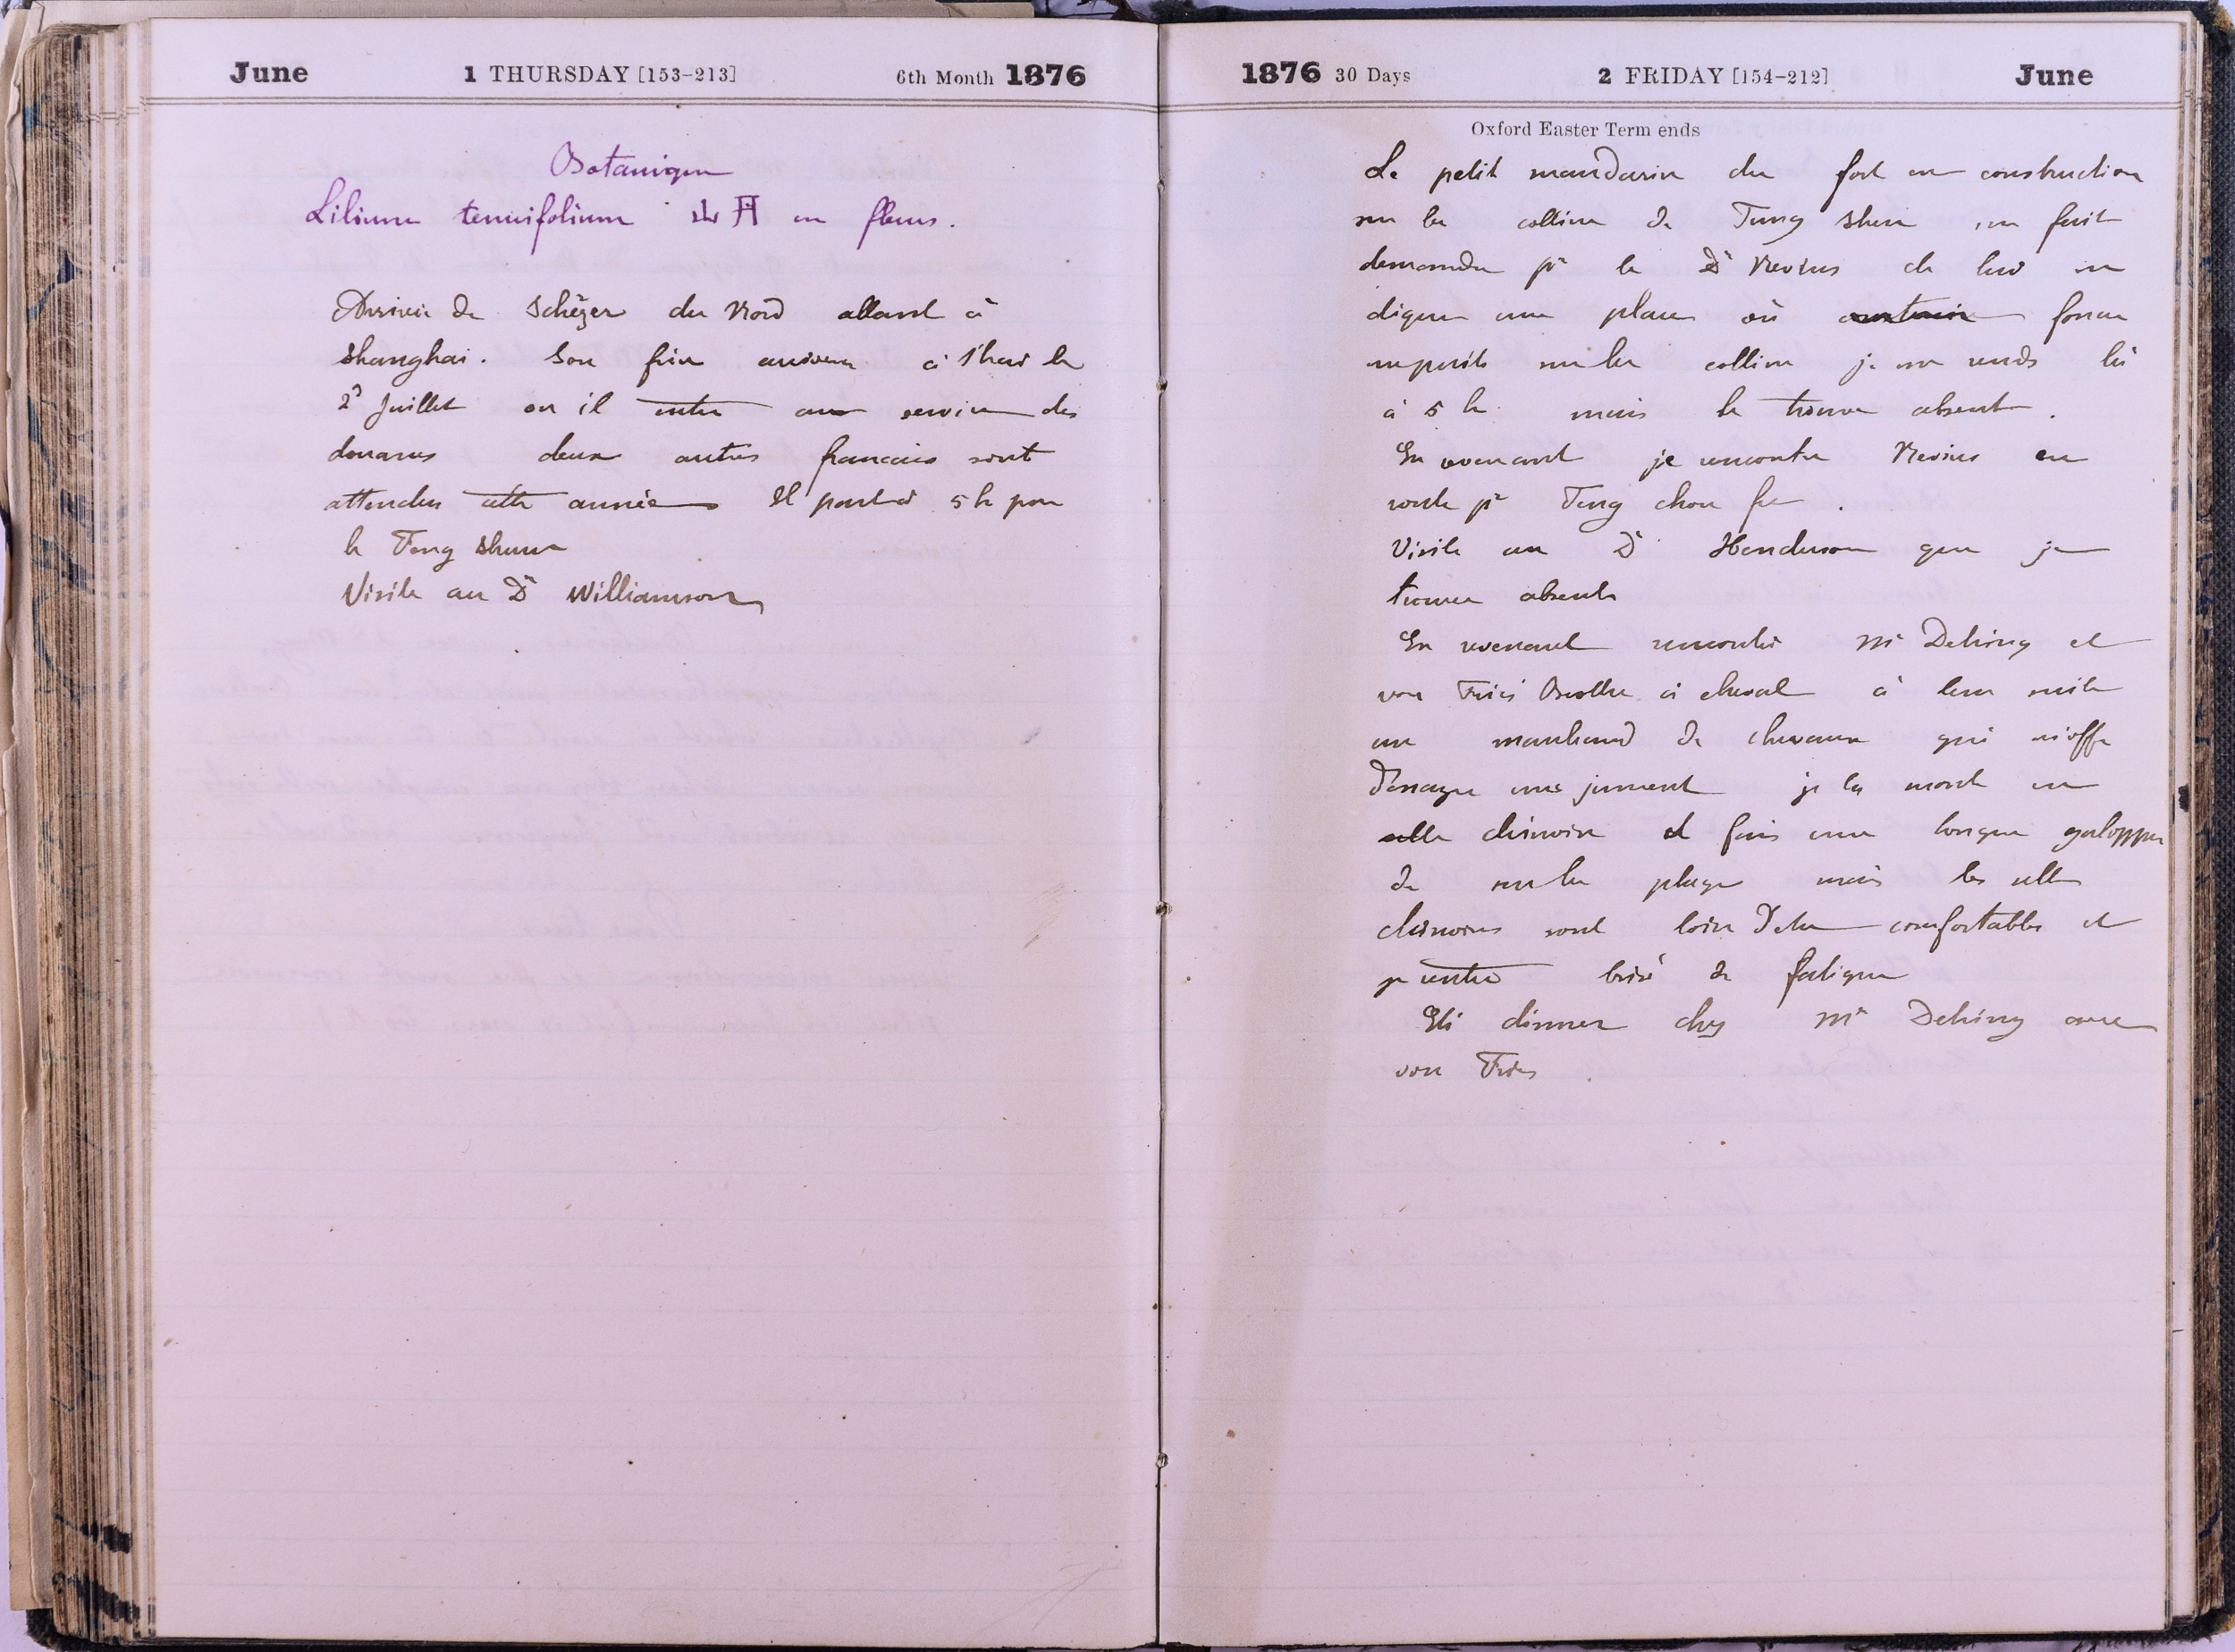 June 1 THURSDAY [153-213] 6th Month 1876
Botanique
Lilium tenuifolium 山丹 en fleurs.
Arrivée de Schèzer du Nord allant à
Shanghai. Son frère arrivera à S'hai le
2 Juillet ou il entre au service des
douanes deux autres francais sont
attendus cette année Il part à 5 h pour
le Fung Shunn
Visite au Dr Williamson
1876 30 Days 2 FRIDAY [154-212] June
Oxford Easter Term ends
Le petit mandarin du fort en construction
sur la colline de Tung Shen me fait
demander pr le Dr Nevius de lui in
diquer une place où certain forme
sur la colline je me rends là
à 5 h mais le trouve absent.
En revenant je rencontre Nevius en
route pr Teng chou fu.
Visite au Dr Henderson que je
trouve absent
En revenant rencontré Mr Detring et
von Fries à cheval à leur suite
un marchand de chevaux qui m'offre
d'essayer une jument je la monte en
selle chinoise et fais une longue galoppa
de sur la plage mais les selles
chinoises sont loin d'etre comfortables et
je rentre brisé de fatigue
Eté dinner chez Mr Detring avec
von Fries